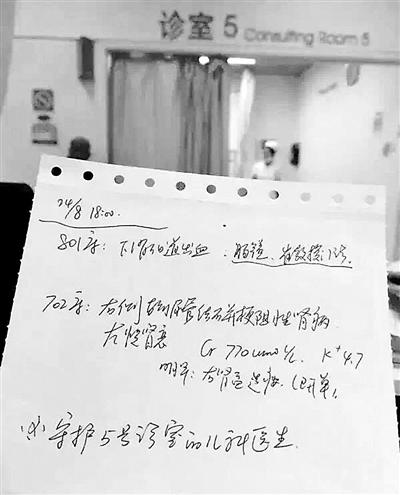 诊室 5 Consulting Room 5
24/8 18:00.
801房: 下消化道出血. 肠镜、
702房: 右侧 输尿管结石并梗阻性肾病
右 肾衰 Cr 770umol/L K+4.7
明早: 右肾造瘘. (已开单)
守护5号诊室的儿科医生